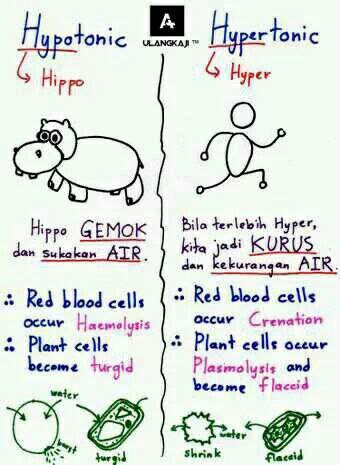 A
ULANGKAJI ™
Hypotonic
Hippo
Hippo GEMOK
dan Sukakan AIR.
∴ Red blood cells
occur Haemolysis
∴ Plant cells
become turgid
water
burst
turgid
Hypertonic
Hyper
Bila terlebih Hyper,
kita jadi KURUS
dan kekurangan AIR.
∴ Red blood cells
occur Crenation
∴ Plant cells occur
Plasmolysis and
become flaccid
water
shrink
flaccid